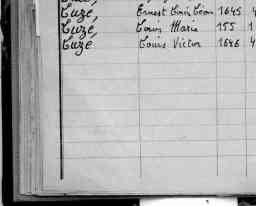 Cuzé, Ernest Louis Léon 1645
Cuzé, Louis Marie 155 1
Cuze Louis Victor 1646 4